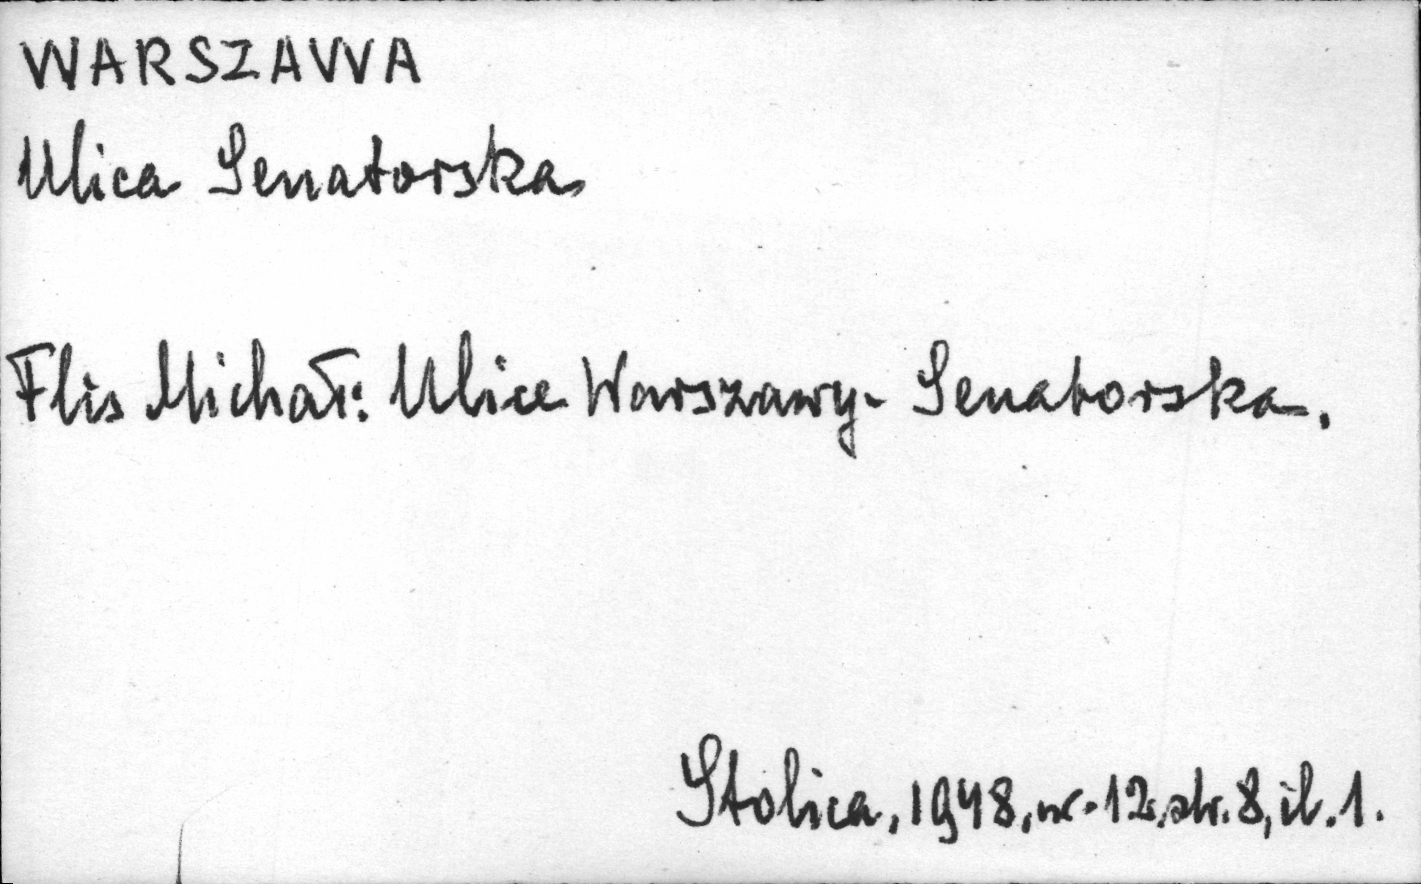 WARSZAWA
Ulica Senatorska
Flis Michał: Ulice Warszawy - Senatorska.
Stolica, 1948, nr. 12, str. 8, il. 1.